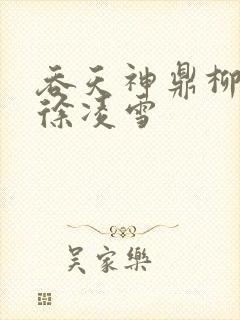 吞天神鼎柳
徐凌雪
吴家乐